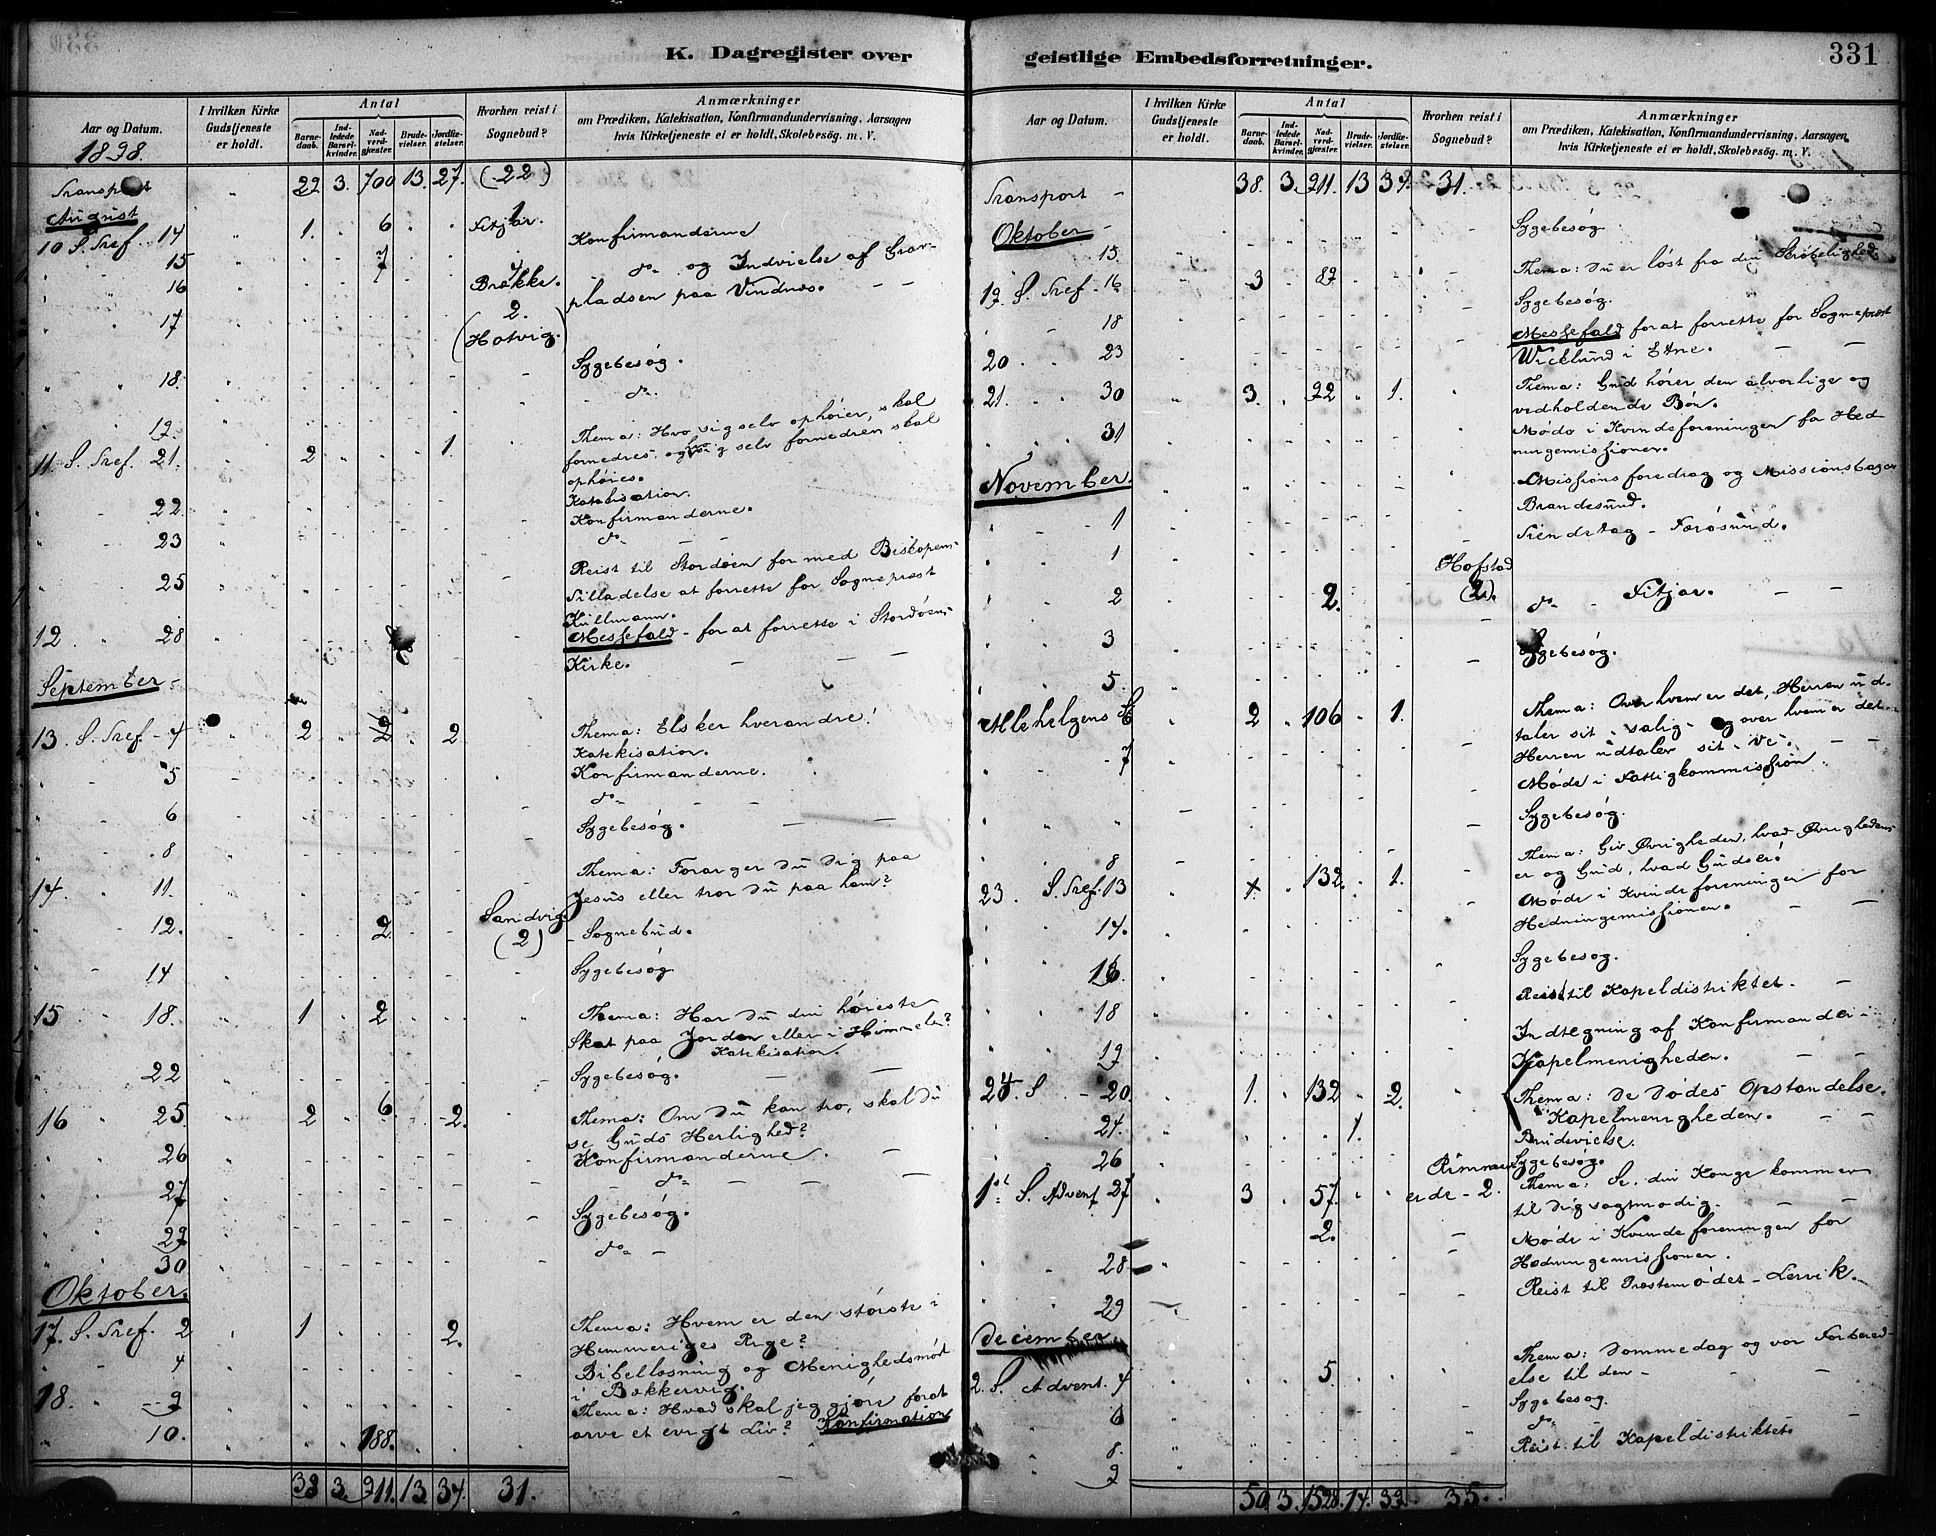 K. Dagregister over
Aar og Datum.
1898.
I hvilken Kirke Gudstjeneste er holdt.
Antal
Barne-daab.
Ind-ledede Barsel-kvinder.
Nad-verd-gjæster.
Brude-vielser.
Jordfæ-stelser.
Hvorhen reist i Sognebud?
Anmærkninger
om Prædiken, Katekisation, Konfirmandundervisning, Aarsagen
hvis Kirketjeneste ei er holdt, Skolebesög. m. V.
Transport " 22 3. 700 13. 27. (22)
August
10 S. Tref. 14 " 1. 6 Fitjar. Konfirmanderne
15 7 do og Indvielse af Grav-
16 Brække. pladsen paa Vindnæs.
17 2. (Hatvig.)
Sygebesøg.
18. do
19. Thema: Hvo sig selv ophøier, skal
11. S. Tref. 21. 2 1. fornedres, og hvo sig selv fornedrer skal
ophøies.
Katekisation.
22. Konfirmanderne.
23 do
25 Reist til Stordøen for med Biskopens
Tilladelse at forrette for Sognepræst
Kullmann.
12 " 28 Messefald - for at forrette i Stordøens
Kirke.
September
13. S. Tref - 4 2 12 2 Thema: Elsker hverandre!
Katekisation.
5 Konfirmanderne.
6 do
8 Sygebesøg.
14. 11. Thema: Forarger Du Dig paa
Jesus eller tror Du paa ham?
12. 2 Sandvig (2) - Sognebud.
14 Sygebesøg
15 18. 1 2 Thema: Har Du din høieste
Skat paa Jorden eller i Himmelen?
Katekisation.
22 Sygebesøg.
16 " 25. 2 6 2. Thema: Om Du kan tro, skal Du
se Guds Herlighed?
26 Konfirmanderne.
27 do
29 Sygebesøg.
30 do
Oktober.
17. S. Tref. 2 1 2. Thema: Hvem er den største i
Himmeriges Rige?
4 Bibellæsning og Menighedsmøde
i Bækkervig.
18. " 9 Thema: Hvad skal jeg gjøre forat
10. 188. arve et evigt Liv? Konfirmation
38 3. 911. 13. 34. 31.
geistlige Embedsforretninger.
331
Aar og Datum.
I hvilken Kirke Gudstjeneste er holdt.
Antal
Barne-daab.
Ind-ledede Barsel-kvinder.
Nad-verd-gjæster.
Brude-vielser.
Jordfæ-stelser.
Hvorhen reist i Sognebud?
Anmærkninger
om Prædiken, Katekisation, Konfirmandundervisning, Aarsagen,
hvis Kirketjeneste ei er holdt, Skolebesög. m. V.
Transport - 38. 3. 911. 13 34. 31.
Oktober
15. Sygebesøg
19 S. Tref - 16 3 87 Thema: Du er løst fra din Skrøbelighed.
18 Sygebesøg.
20 23 Messefald forat forrette for Sognepræst
Wicklund i Etne.
21. 30 3. 92 1. Thema: Gud hører den alvorlige og
vedholdende Bøn.
31 Møde i Kvindeforeningen for Hed-
ningemissionen.
November.
1 Missionsforedrag og Missionsbazar
Brandesund.
1 Tiendetag - Færøsund.
2 2. Hofstad (2). do - Fitjar.
3
5. Sygebesøg.
Allehelgens 6 2 106 1. Thema: Over hvem er det, Herren ud-
taler sit "salig" og over hvem er det
Herren udtaler sit "ve".
7 Møde i Fattigkommission
8 Sygebesøg.
23. S. Tref. 13 132. 1. Thema: Giv Øvrigheden, hvad Øvrighedens
er og Gud, hvad Guds er!
14. Møde i Kvindeforeningen for
Hedningemissionen.
16. Sygebesøg.
18 Reist til Kapeldistriktet.
19 Indtegning af Konfirmander i
Kapelmenigheden.
24. S. - 20. 1. 132 2. Thema: De Dødes Opstandelse.
Kapelmenigheden.
24. 1. Brudevielse.
26 Sygebesøg.
1ste S. Advent 27 3 57. - 2. Thema: Se, din Konge kommer
til Dig sagtmodig.
2.
28 Møde i Kvindeforeningen for
Hedningemissionen.
29 Reist til Præstemødet - Lervik.
December
2. S. Advent. 4 5. Thema: Dommedag og vor Forbered-
else til den -
6 Sygebesøg.
8. do
9 Reist til Kapeldistriktet.
50. 3. 1528. 14. 39. 35.